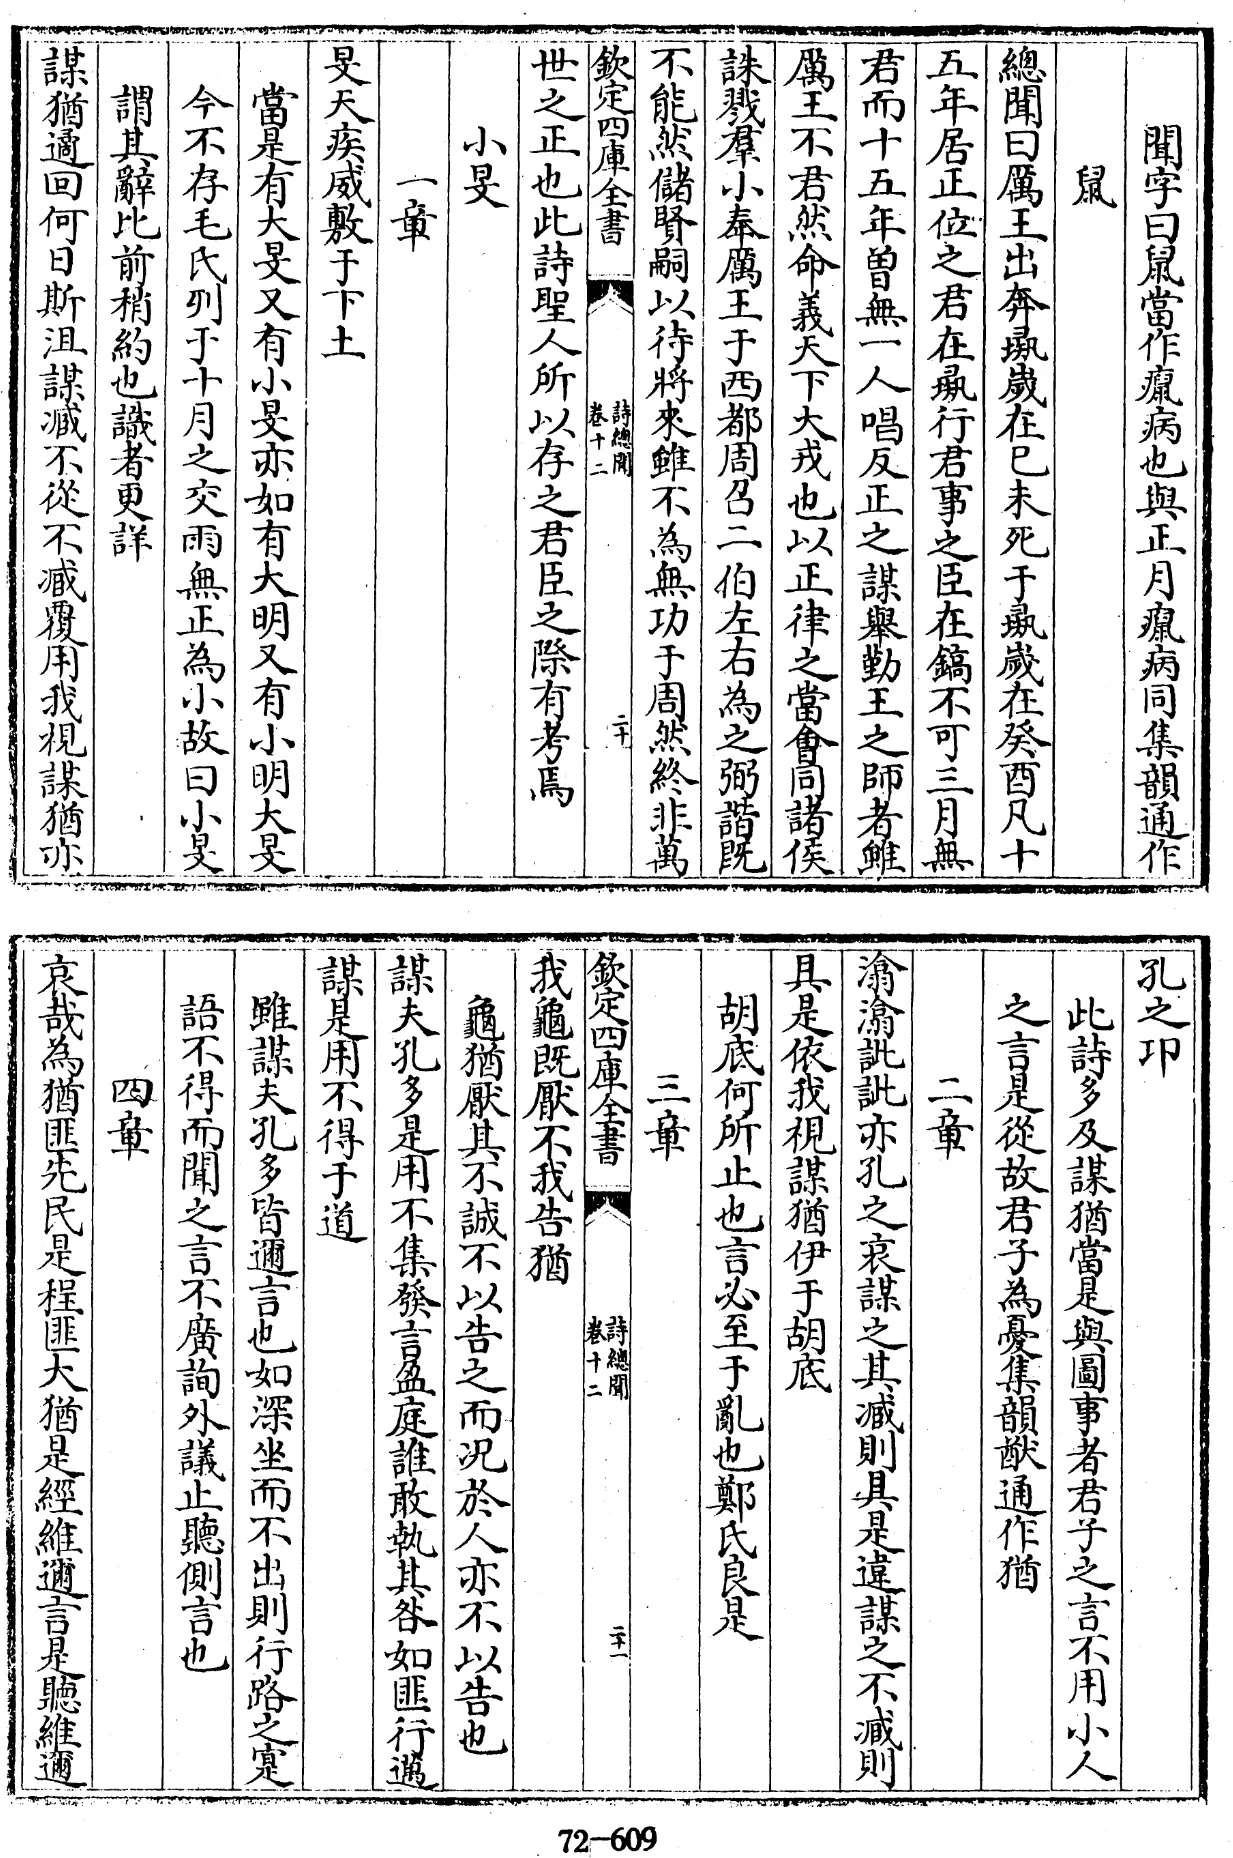 聞字曰鼠當作癙病也與正月癙病同集韻通作
鼠
總聞曰厲王出奔彘歲在已未死于彘歲在癸酉凡十
五年居正位之君在彘行君事之臣在鎬不可三月無
君而十五年曾無一人唱反正之謀舉勤王之師者雖
厲王不君然命義天下大戎也以正律之當會同諸侯
誅戮羣小奉厲王于西都周召二伯左右為之弼諧既
不能然儲賢嗣以待將來雖不為無功于周然終非萬
欽定四庫全書
詩總聞
卷十二
二十
世之正也此詩聖人所以存之君臣之際有考焉
小旻
一章
旻天疾威敷于下土
當是有大旻又有小旻亦如有大明又有小明大旻
今不存毛氏列于十月之交雨無正為小故曰小旻
謂其辭比前稍約也識者更詳
謀猶遹回何日斯沮謀臧不從不臧覆用我視謀猶亦
孔之卭
此詩多及謀猶當是與圖事者君子之言不用小人
之言是從故君子為憂集韻猷通作猶
二章
潝潝訿訿亦孔之哀謀之其臧則具是違謀之不臧則
具是依我視謀猶伊于胡底
胡底何所止也言必至于亂也鄭氏良是
三章
欽定四庫全書
詩總聞
卷十二
二十一
我龜既厭不我告猶
龜猶厭其不誠不以告之而况於人亦不以告也
謀夫孔多是用不集發言盈庭誰敢執其咎如匪行邁
謀是用不得于道
雖謀夫孔多皆邇言也如深坐而不出則行路之寔
語不得而聞之言不廣詢外議止聽側言也
四章
哀哉為猶匪先民是程匪大猶是經維邇言是聽維邇
72-609